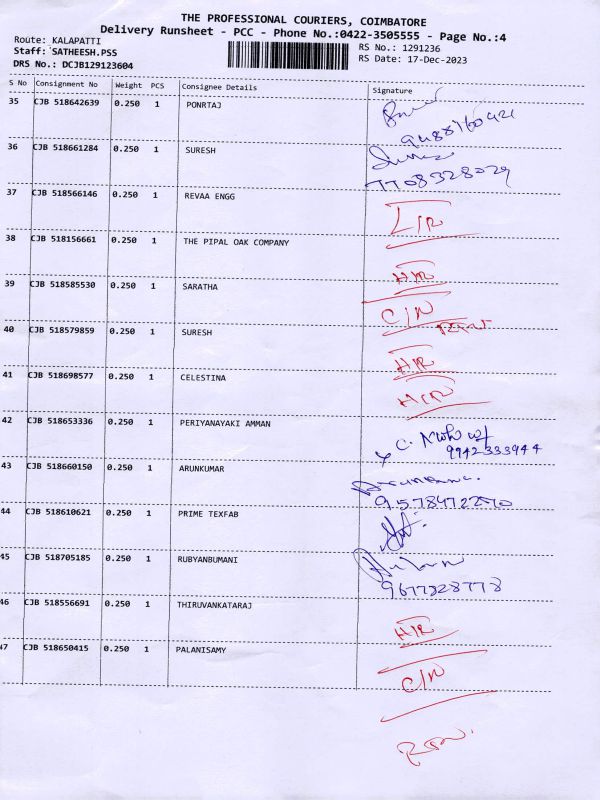 THE PROFESSIONAL COURIERS, COIMBATORE
Delivery Runsheet - PCC - Phone No.:0422-3505555 - Page No.:4
Route: KALAPATTI
RS No.: 1291236
Staff: SATHEESH.PSS
RS Date: 17-Dec-2023
DRS No.: DCJB129123604
S No Consignment No Weight PCS Consignee Details Signature
35 CJB 518642639 0.250 1 PONRTAJ
36 CJB 518661284 0.250 1 SURESH
7708328029
37 CJB 518566146 0.250 1 REVAA ENGG
38 CJB 518156661 0.250 1 THE PIPAL OAK COMPANY
H/R
39 CJB 518585530 0.250 1 SARATHA
C/N
40 CJB 518579859 0.250 1 SURESH
H/R
41 CJB 518698577 0.250 1 CELESTINA
H/R
42 CJB 518653336 0.250 1 PERIYANAYAKI AMMAN
9942333944
43 CJB 518660150 0.250 1 ARUNKUMAR
44 CJB 518610621 0.250 1 PRIME TEXFAB
45 CJB 518705185 0.250 1 RUBYANBUMANI
46 CJB 518556691 0.250 1 THIRUVANKATARAJ
H/R
47 CJB 518650415 0.250 1 PALANISAMY
C/N